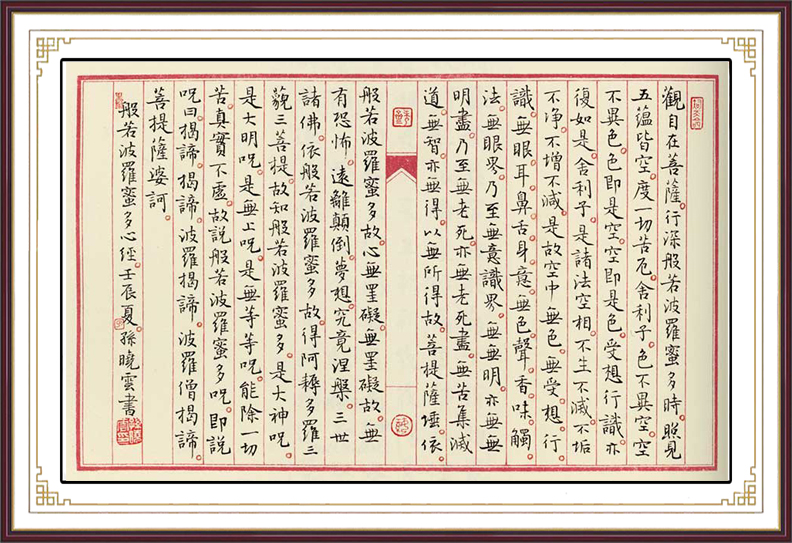 觀自在菩薩。行深般若波羅蜜多時。照見
五蘊皆空。度一切苦厄。舍利子。色不異空。空
不異色。色即是空。空即是色。受想行識。亦
復如是。舍利子。是諸法空相。不生不滅。不垢
不净。不增不減。是故空中無色。無受想行
識。無眼耳鼻舌身意。無色聲香味觸
法。無眼界。乃至無意識界。無無明。亦無無
明盡。乃至無老死。亦無老死盡。無苦集滅
道。無智亦無得。以無所得故。菩提薩埵。依
般若波羅蜜多故。心無罣礙。無罣礙故。無
有恐怖。遠離顛倒夢想。究竟涅槃。三世
諸佛。依般若波羅蜜多故。得阿耨多羅三
藐三菩提。故知般若波羅蜜多。是大神呪。
是大明呪。是無上呪。是無等等呪。能除一切
苦。真實不虛。故說般若波羅蜜多呪。即說
呪曰。揭諦。揭諦。波羅揭諦。波羅僧揭諦。
菩提薩婆訶。
般若波羅蜜多心經。壬辰夏。孫曉雲書